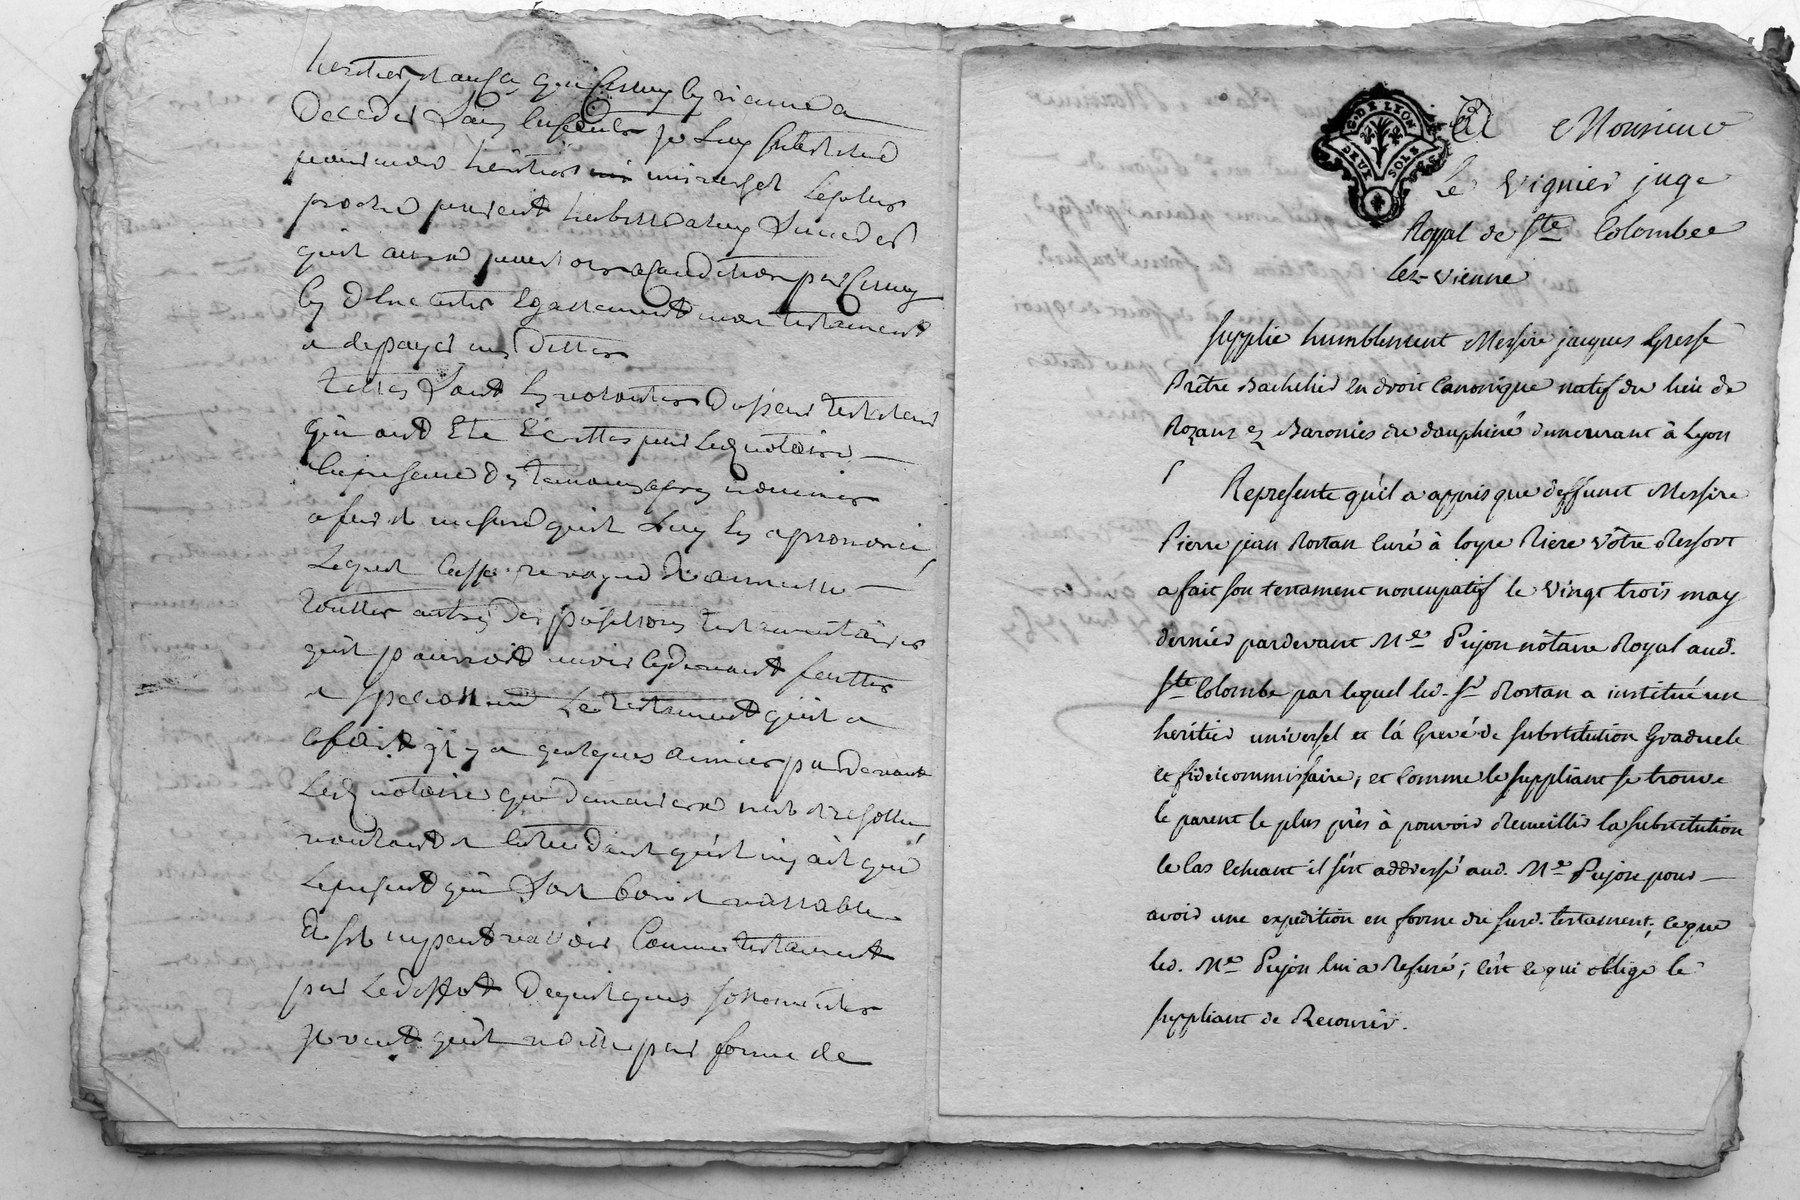 heritier, et au cas que
deceder sans enfants je luy substitue
pour mon heritier universel le plus
proche parent habille a luy succeder
qu'il aura pour lors a condition par
egallement mon testament
a de payer mes dettes
telles sont les volontes dudit sieur testateur
qui ont été Ecrittes par led notaire
en presence des temoins apres nommés
a fur et mesure qu'il luy les a prononcé
Lequel casse revoque et annulle
touttes autres dispositions testamentaires
qu'il pourroit avoir cy devant faittes
et specialement Le testament qu'il a
a fait il y a quelques années pardevant
Led notaire que demeurera nul et resollu,
voulant et entendant qu'il ny ait que
le present qui soit bon et vallable
Et sil ne peut valloir Comme testament
par le deffaut de quelques sollemnites
il veut qu'il vaille par forme de
G. DE LYON
DEUX SOLS
A Monsieur
Le Viguier juge
Royal de Ste Colombe
lez-Vienne
Supplie humblement Messire jacques Gresse
Prêtre Bachelier en droit Canonique natif du lieu de
Rozans ez Baronies du dauphiné demeurant à Lyon
Represente qu'il a appris que deffunct Messire
Pierre jean Rostan Curé à loyre Riere Vôtre Ressort
a fait son testament noncupatif le Vingt trois may
dernier pardevant Me Pujon nôtaire Royal aud.
Ste Colombe par lequel led. Sr Rostan a institué un
heritier universel et la Grevé de Substitution Graduele
et fideicommissaire, et Comme le suppliant se trouve
le parent le plus près à pouvoir Recueillir la Substitution
le Cas echeant il s'est addressé aud. Me Pujon pour
avoir une expedition en forme du susd. testament; ce que
led. Me Pujon lui a Refusé; c'est ce qui oblige le
suppliant de Recourir.